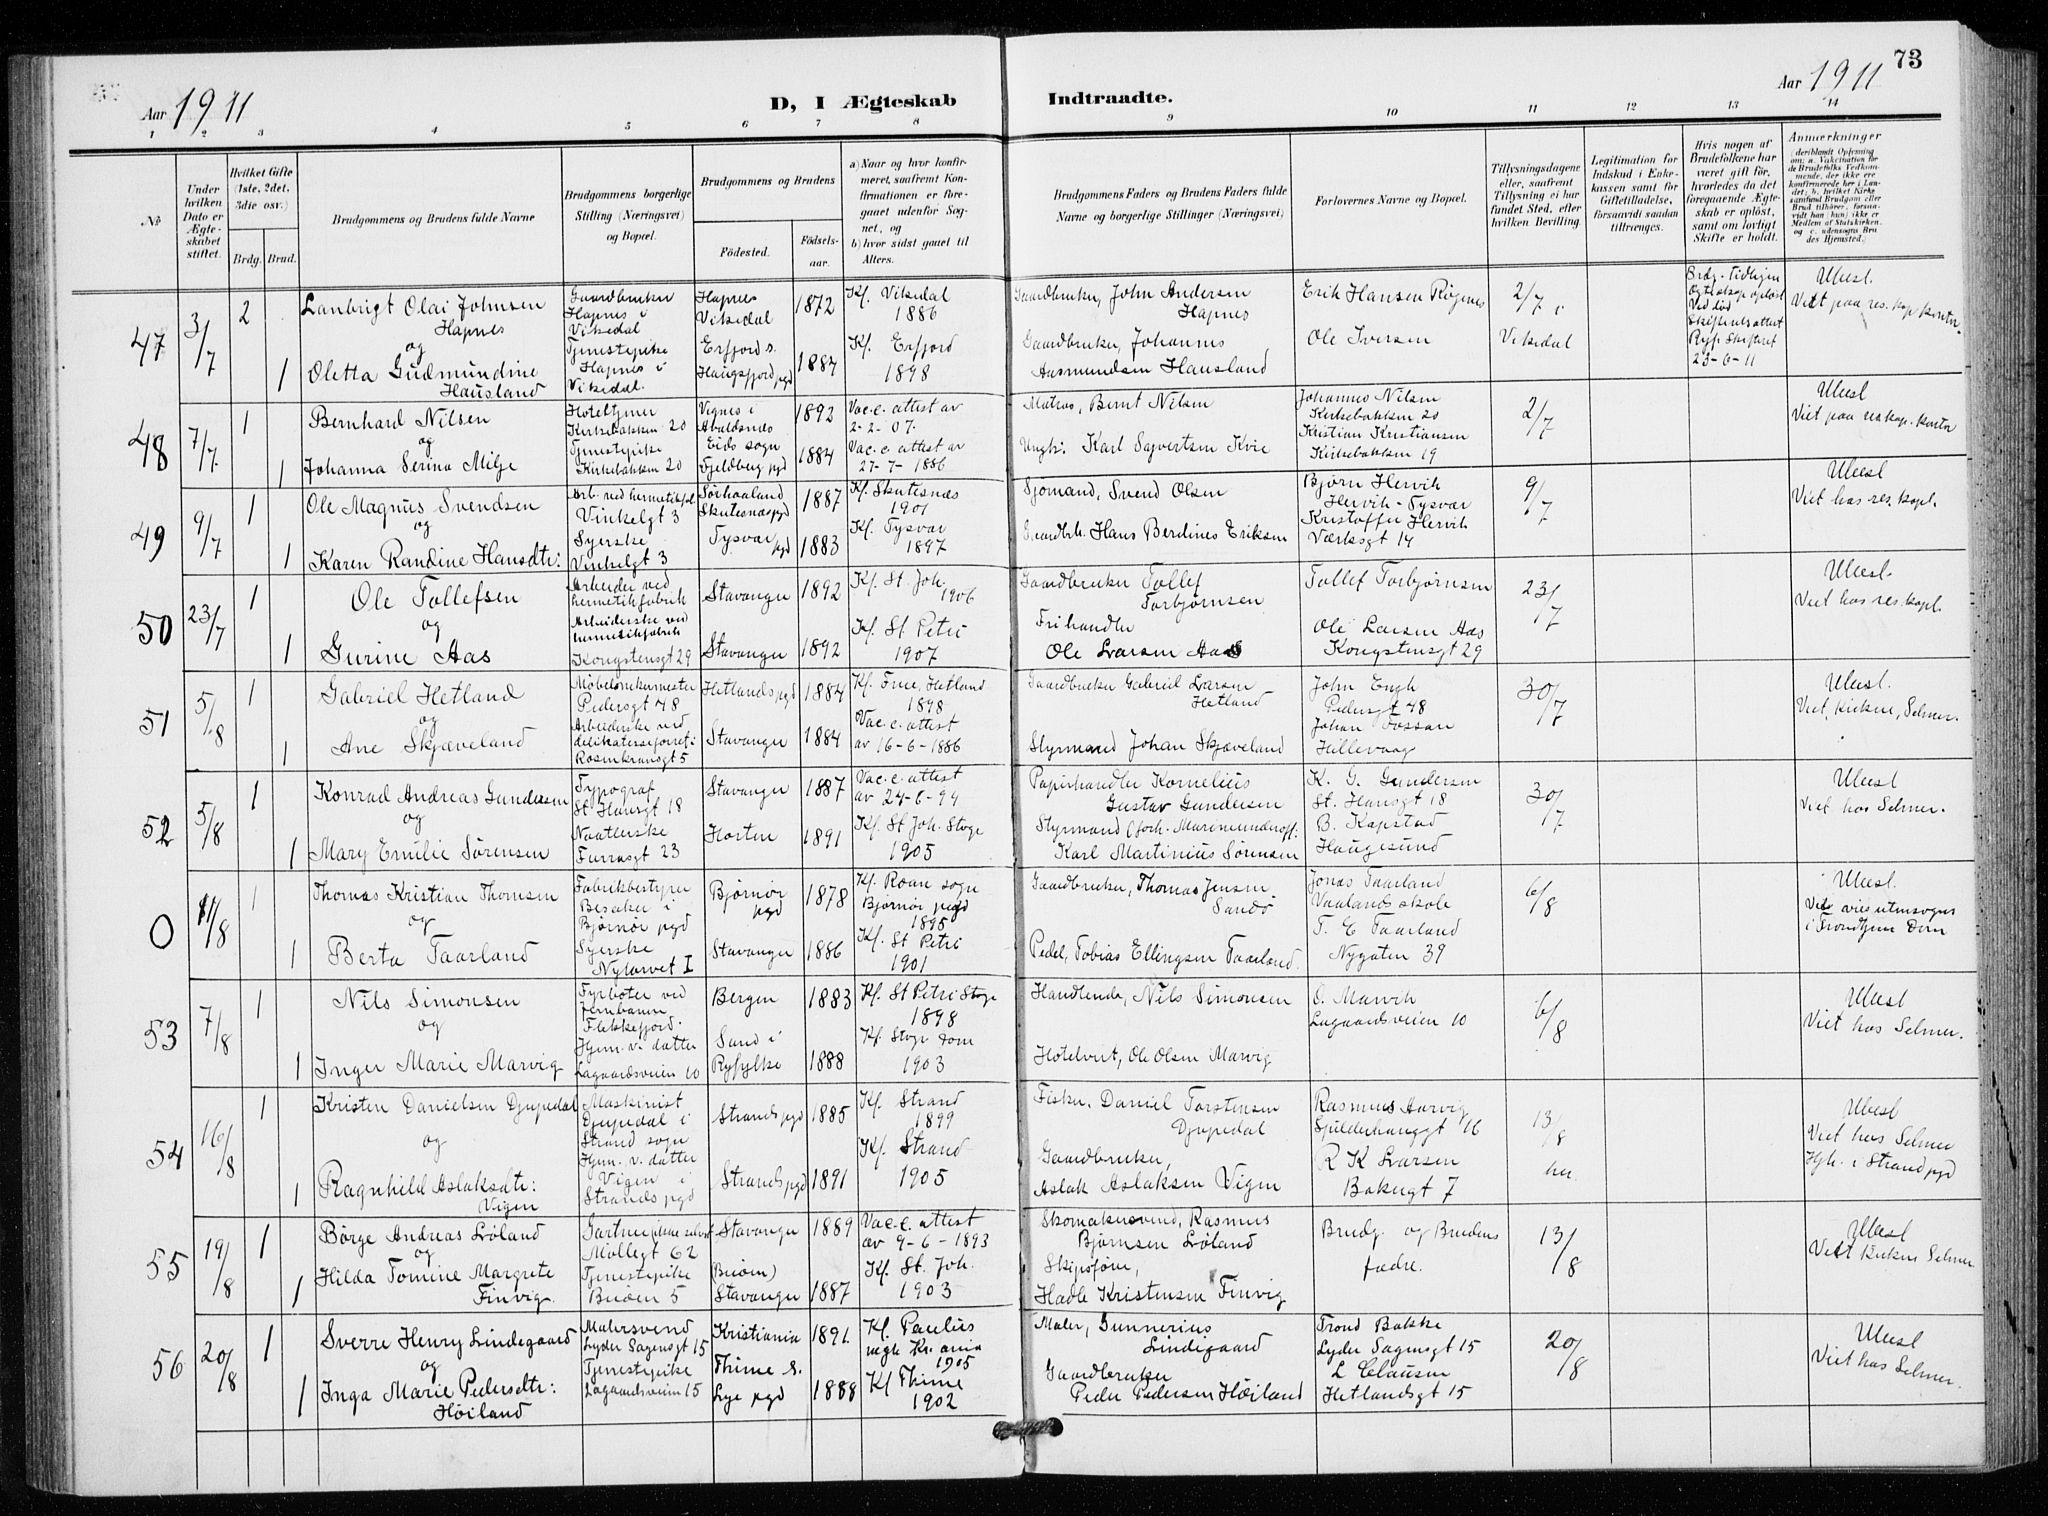 73
Aar 1911
D, I Ægteskab Indtraadte.
Aar 1911
1 2 3 4 5 6 7 8 9 10 11 12 13 14
No
Under hvilken Dato er Ægteskabet stiftet.
Hvilket Gifte (1ste, 2det, 3die osv.)
Brdg. Brud.
Brudgommens og Brudens fulde Navne
Brudgommens borgerlige Stilling (Næringsvei) og Bopæl.
Brudgommens og Brudens
Födested.
Födselsaar.
a) Naar og hvor konfirmeret, saafremt Konfirmationen er foregaaet udenfor Sognet, og
b) hvor sidst gaaet til Alters.
Brudgommens Faders og Brudens Faders fulde Navne og borgerlige Stillinger (Næringsvei)
Forlovernes Navne og Bopæl.
Tillysningsdagene eller, saafremt Tillysning ei har fundet Sted, efter hvilken Bevilling.
Legitimation for Indskud i Enkekassen samt for Giftetilladelse, forsaavidt saadan tiltrænges.
Hvis nogen af Brudefolkene har været gift før, hvorledes da det foregaaende Ægteskab er oplöst, samt om lovligt Skifte er holdt.
Anmærkninger
(deriblandt Oplysning om: a. Vakcination for de Brudefolks Vedkommende, der ikke ere konfirmerede her i Landet; b. hvilket Kirkesamfund Brudgom eller Brud tilhörer, forsaavidt han (hun) ikke er Medlem af Statskirken, og c. udensogns Brudes Hjemsted.)
47
3/7
2
Lanbrigt Olai Johnsen
Hapnes
og
1
Oletta Gudmundine
Hausland
Gaardbruker
Hapnes i
Vikedal
Tjenestepike
Hapnes i
Vikedal.
Hapnes
Vikedal
Erfjord s.
1872
1887
Kf. Vikedal
1886
Kf. Erfjord
1898
Gaardbruker, John Andersen
Hapnes
Gaardbruker, Johannes
Aasmundsen Hausland
Erik Hansen Røgnes
Ole Iversen
2/7 i
Vikedal
Brdg. tidligere
Ved död
Skifteretsattest
23-6-11
Ulæst.
Viet paa res. kap. kontor.
48
7/7
1
Bernhard Nilsen
og
1
Johanna Serina Milje
Hoteltjener
Kirkebakken 20
Tjenestepike
Kirkebakken 20
Vignes i
Avaldsnes
Eids sogn
Fjeldberg pgd
1892
1884
Vac.c. attest av
2-2-07.
Vac.c. attest av
27-7-1886
Matros, Bernt Nilsen
Ungk. Karl Sjovertsen Kvie
Johannes Nilsen
Kirkebakken 20
Kristian Kristiansen
Kirkebakken 19
2/7
Ulæst
Viet paa res kap. kontor
49
9/7
1
Ole Magnus Svendsen
og
1
Karen Randine Hansdtr:
Arb. ved hermetikfa.
Vinkelgt 3
Syerske
Vinkelgt 3
Sörhaaland
Skutesnæs pgd
Tysvær pgd
1887
1883
Kf. Skutesnæs
1901
Kf. Tysvær
1897
Sjömand, Svend Olsen
Gaardbrk. Hans Berdines Eriksen
Bjørn Hervik
Hervik-Tysvær
Kristoffer Hervik
Værksgt 14
9/7
Ulæst
Viet hos res. kapl.
50
23/7
1
Ole Tollefsen
og
1
Gurine Aas
Arbeider ved
hermetikfabrik
Arbeiderske ved
hermetikfabrik
Kongstensgt 29
Stavanger
Stavanger
1892
1892
Kf. St. Joh.
1906
Kf. St Petri
1907
Gaardbruker Tollef
Torbjørnsen
Frihandler
Ole Larsen Aas
Tollef Torbjørnsen
Ole Larsen Aas
Kongstensgt 29
23/7
Ulæst.
Viet hos res. kapl.
51
5/8
1
Gabriel Hetland
og
1
Ane Skjæveland
Möbelsnekermester
Pedersgt 48
Arbeiderske ved
delikatesseforret.
Rosenkransgt 5
Hetlands pgd
Stavanger
1884
1884
Kf. Frue, Hetland
1898
Vac.c. attest
av 16-6-1886
Gaardbruker Gabriel Larsen
Hetland
Styrmand Johan Skjæveland
John Engh
Pedersgt 48
Johan Fossan
Hillevaag
30/7
Ulæst.
Viet, Kirken, Selmer.
52
5/8
1
Konrad Andreas Gundersen
og
1
Mary Emilie Sørensen
Typograf
St Hansgt 18
Naatlerske
Furrasgt 23
Stavanger
Horten
1887
1891
Vac.c. attest
av 24-6-94
Kf. St Joh. Stvge
1905
Papirhandler Kornelius
Gustav Gundersen
Styrmand (forh. Marineunderoff:
Karl Martinius Sørensen
K. G. Gundersen
St. Hansgt 18
B. Kapstad
Haugesund
30/7
Ulæst
Viet hos Selmer.
0
11/8
1
Thomas Kristian Thomsen
og
1
Berta Taarland
Fabrikbestyrer
Besaker i
Bjørnør pgd
Syerske
Nytorvet I
Bjørnør
pgd
Stavanger
1878
1886
Kf. Roan sogn
Bjørnør pgd
1895
Kf. St Petri
1901
Gaardbruker, Thomas Jensen
Sandö
Pedel, Tobias Ellingsen Taarland.
Jonas Taarland
Vaalands skole
T. E Taarland
Nygaten 39
6/8
Ulæst.
Viet utensogns
i Trondhjem Dom
53
7/8
1
Nils Simonsen
og
1
Inger Marie Marvig
Fyrböter ved
jernbanen
Flekkefjord.
Hjem. v. datter
Lagaardsveien 10
Bergen
Sand i
Ryfylke
1883
1888
Kf. St Petri Stvge
1898
Kf. Stvge Dom
1903
Handlende, Nils Simonsen
Hotelvert, Ole Olsen Marvig
O. Marvik
Lagaardsveien 10
6/8
Ulæst
Viet hos Selmer.
54
16/8
1
Kristen Danielsen Djupedal
og
1
Ragnhild Aslaksdtr:
Vigen
Maskinist
Djupedal i
Strand sogn
Hjem. v. datter
Vigen i
Strands pgd
Strands pgd
Strands pgd
1885
1891
Kf. Strand
1899
Kf. Strand
1905
Fisker, Daniel Torstensen
Djupedal
Gaardbruker,
Aslak Aslaksen Vigen
Rasmus Aarvig
Spilderhauggt 16
R K Larsen
Bakergt 7
13/8
her
Ulæst
Viet hos Selmer
Hjh. i Strand pgd
55
19/8
1
Börge Andreas Löland
og
1
Hilda Tomine Margrete
Finvig.
Gartner
Möllegt 62
Tjenestepike
Buöen 5
Stavanger
(Buöen)
Stavanger
1889
1887
Vac.c. attest
av 9-6-1893
Kf. St. Joh.
1903
Skomakersvend, Rasmus
Bjørnsen Löland
Skipsförer,
Hadle Kristensen Finvig
Brudg. og Brudens
fædre.
13/8
Ulæst
Viet Kirken Selmer.
56
20/8
1
Sverre Henry Lindegaard
og
1
Inga Marie Pedersdtr:
Höiland
Malersvend
Lyder Sagensgt 15
Tjenestepike
Lagaardsveien 15
Kristiania
Thime s.
Lye pgd
1891.
1888
Kf. Paulus
mgh Kr.ania
1905
Kf Thime
1902
Maler, Gunnerius
Lindegaard
Gaardbruker
Peder Pedersen Höiland
Trond Bakke
Lyder Sagensgt 15
L Clausen
Hetlandsgt 15
20/8
Ulæst
Viet hos Selmer.